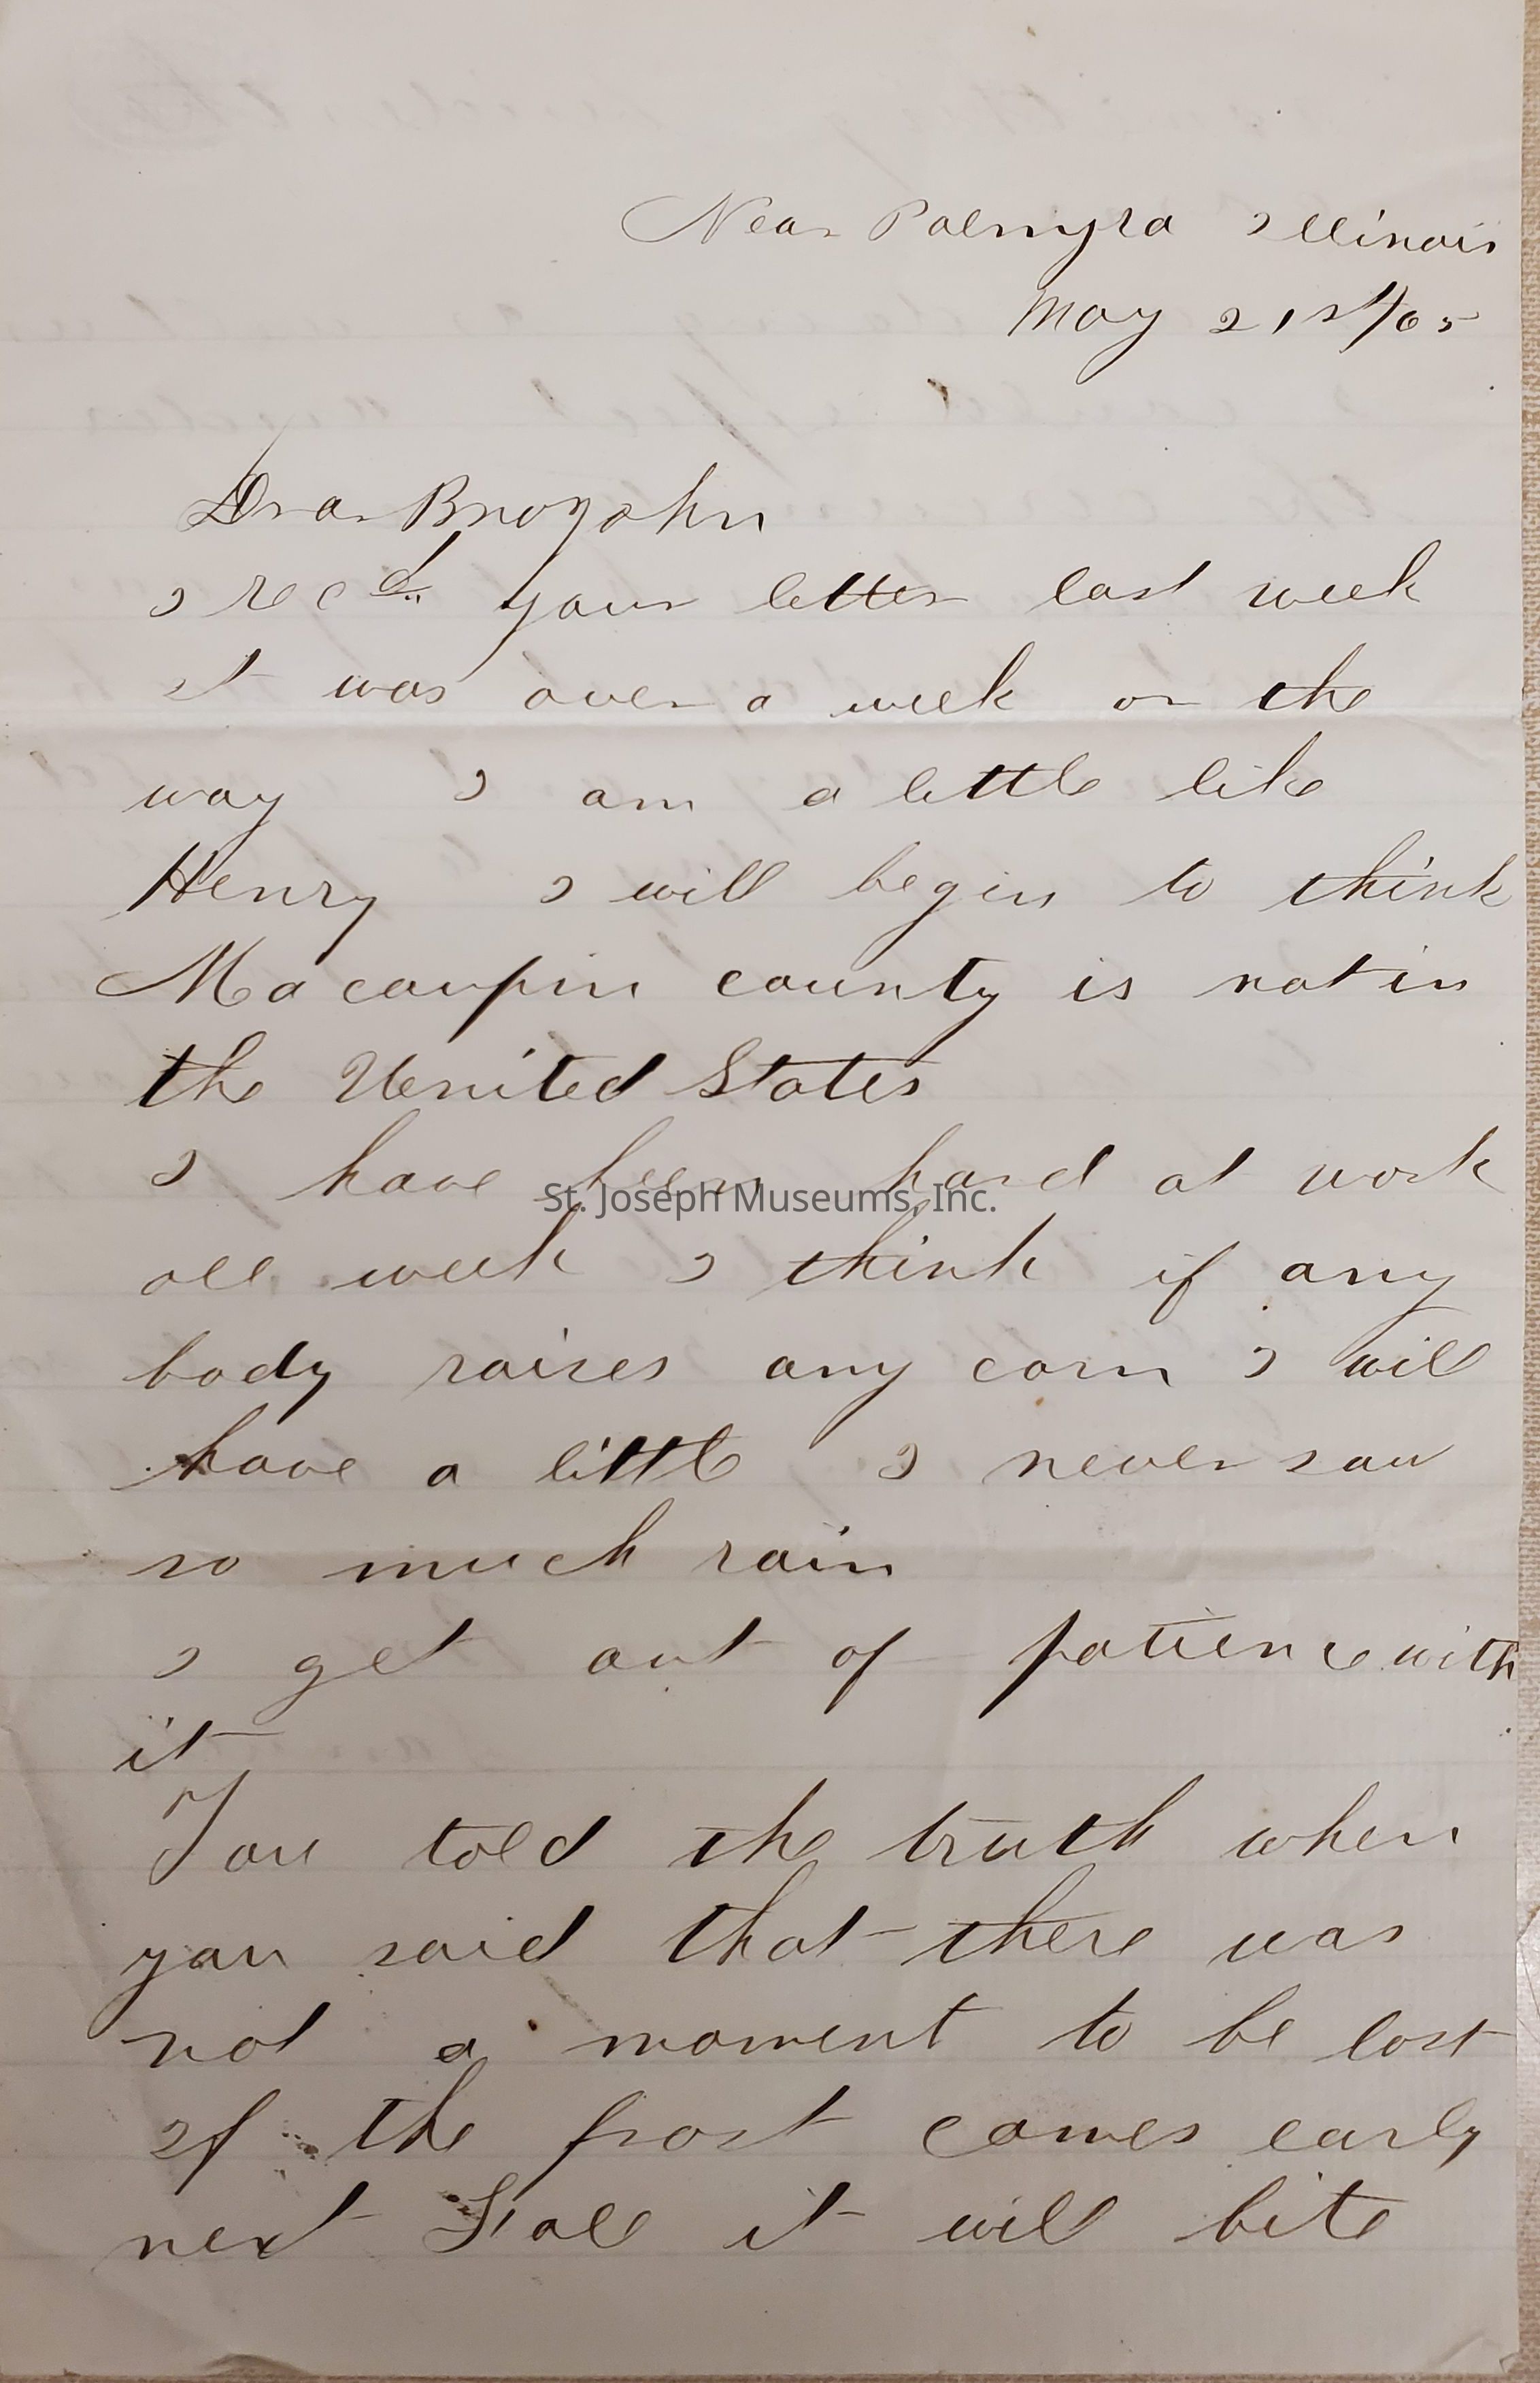 Near Palmyra Illinois
May 21st/65
Dear Bro John
I recd. your letter last week
it was over a week on the
way I am a little like
Henry I will begin to think
Macoupin county is not in
the United States
I have been hard at work
St. Joseph Museums, Inc.
all week I think if any
body raises any corn I will
have a little I never saw
so much rain
I get out of patience with
it
You told the truth when
you said that there was
not a moment to be lost
If the frost comes early
next Fall it will bite